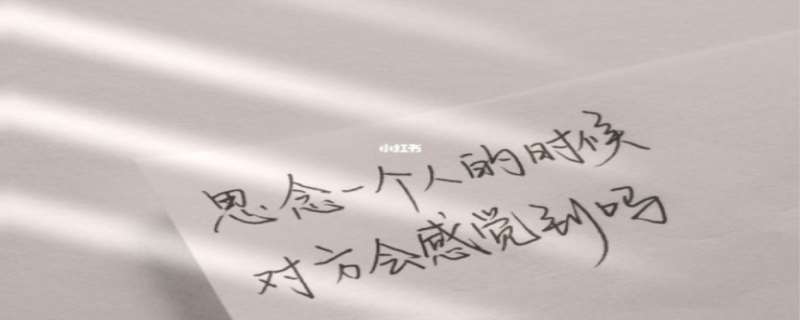 小红书
思念一个人的时候
对方会感觉到吗